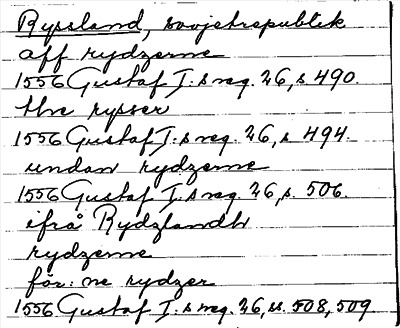 Ryssland, sovjetrepublik
aff rydzerne
1556 Gustaf I:s reg. 26, s 490.
the rysser
1556 Gustaf I:s reg. 26, s 494.
undan rydzerne
1556 Gustaf I:s reg. 26, s. 506.
ifrå Rydzlandh
rydzerne
för:ne rydzer
1556 Gustaf I:s reg. 26, ss. 508, 509.